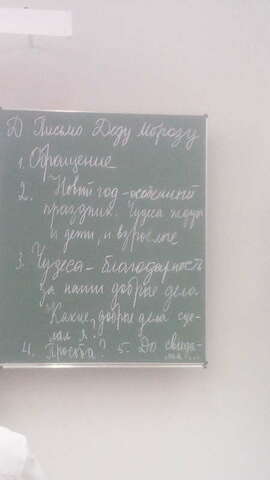 Д Письмо Деду Морозу
1. Обращение
2. Новый год – особенный
праздник. Чудеса ждут
и дети, и взрослые
3. Чудеса – благодарность
за наши добрые дела
Какие добрые дела сде-
лал я?
4. Просьба? 5. До свида-
ния...